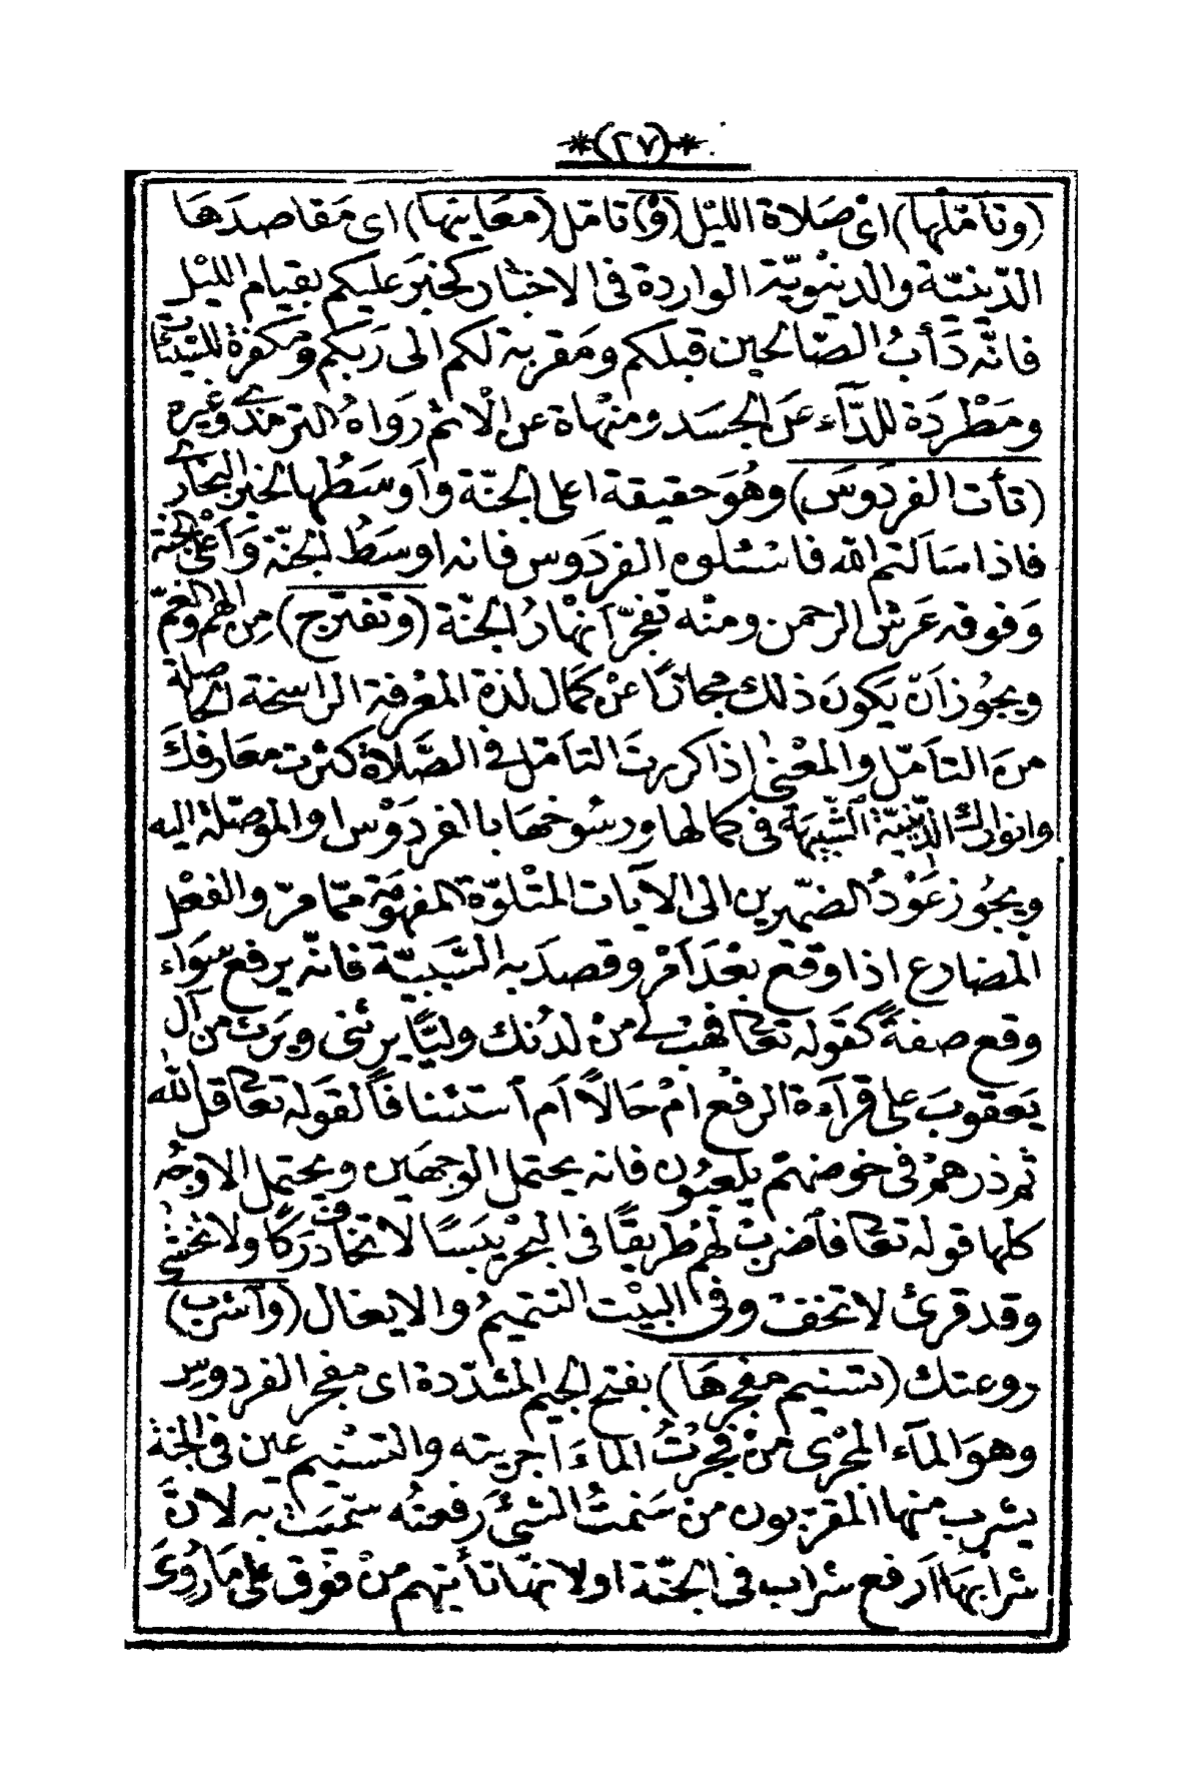 *(٢٧)*
(وتأمّلها) اىْ صَلاة الليْل (وَ) تامّل (معَانيَها) اى مَقاصدَهَا
الدّينيّة والدنيْويّة الواردة فى الاخبار كخبَر عليكم بقيام الليْل
فانّه دَأبُ الصّالحين قبلكم ومَقربة لكم الى رَبكم ومكفرة للسّيّئات
ومَطْردَة للدّآء عَن الجسَد ومنْهاة عن الْاثم رَواهُ الترمذى وغيره
(تأت الفردَوسَ) وهُوَ حقيقة اعلى الجنّة وَاَوسَطُها لخبَر البخارى
فاذا سَاَلتم الله فاسْئلوه الفردَوس فانه اوسَطُ الجنّة وَاَعْلى الجنة
وَفوقه عَرش الرحمن ومنْه تفجرّ اَنهْارُ الجنّة (وتفترج) مِن الهمّ والغمّ
ويجُوز اَنْ يَكونَ ذلك مجَازًا عنْ كمَال لذة المعْرفة الراسخة الحَاصلة
منَ التاَمّل والمعْنى اذا كررتَ التاَمّل فى الصَّلاة كثرت معَارفكَ
وانوارك الدّينيّة الشّبيهَة فى كمالها ورسُوخهَا با الفردَوْس او الموَصّلة اليه
ويجُوز عَوْدُ الضمّيرين الى الآيات المتْلوّة المفهوَمَة ممّا مرّ والفعْل
المضارع اذا وَقع بعْدَ اَمْر وقصدَ به السَّبَبيّة فانّه يرفع سَوَاء
وقع صفةً كقَوله تعَالى فهَبْ لى منْ لدُنك وليًّا يرثنى ويَرَثَ من آل
يَعقوبَ على قرآءة الرفْع امْ حَالاً اَم اَستئنافاً لقَوله تعالى قل الله
ثم ذرهمْ فى خوضهْم يلعَبُون فانه يحتمل الوجهَين ويحْتمل الاوجُه
كلها قوله تعَالى فاَضربْ لهمْ طرَيقًا فى البحْر يبَسًا لا تخافُ دَركًا ولا تخْشى
وقد قرئ لا تخفْ وفى البيْت التتميمُ والايغال (واَشربْ)
روعتك (تسنيم مفجّرهَا) بفتح الجيم المشدّدة اى مفجر الفردوس
وهوَ المآء المجْرى منْ فجّرْتُ الماءَ اَجريته والتسْنيم عين فى الجنة
يشرب منها المقرّبون منْ سَنمتُ الشئَ رَفعتُه سمّيَتْ به لانَّ
شرابهَا اَرفع شراب فى الجنّة او لانهّا تأتيهم منْ فوق على مَا رُوىَ